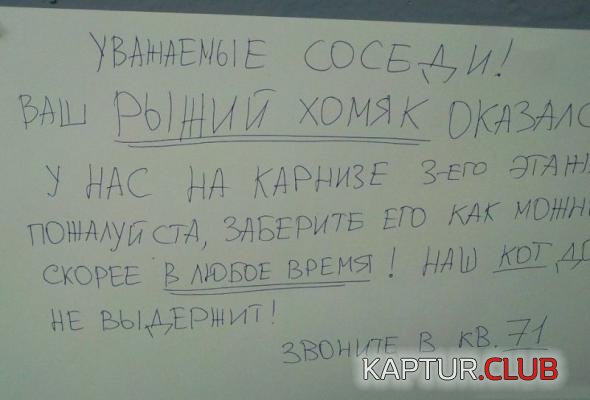 УВАЖАЕМЫЕ СОСЕДИ!
ВАШ РЫЖИЙ ХОМЯК ОКАЗАЛС
У НАС НА КАРНИЗЕ 3-ЕГО ЭТАЖ
ПОЖАЛУЙСТА, ЗАБЕРИТЕ ЕГО КАК МОЖН
СКОРЕЕ В ЛЮБОЕ ВРЕМЯ! НАШ КОТ ДО
НЕ ВЫДЕРЖИТ!
ЗВОНИТЕ В КВ. 71
KAPTUR.CLUB